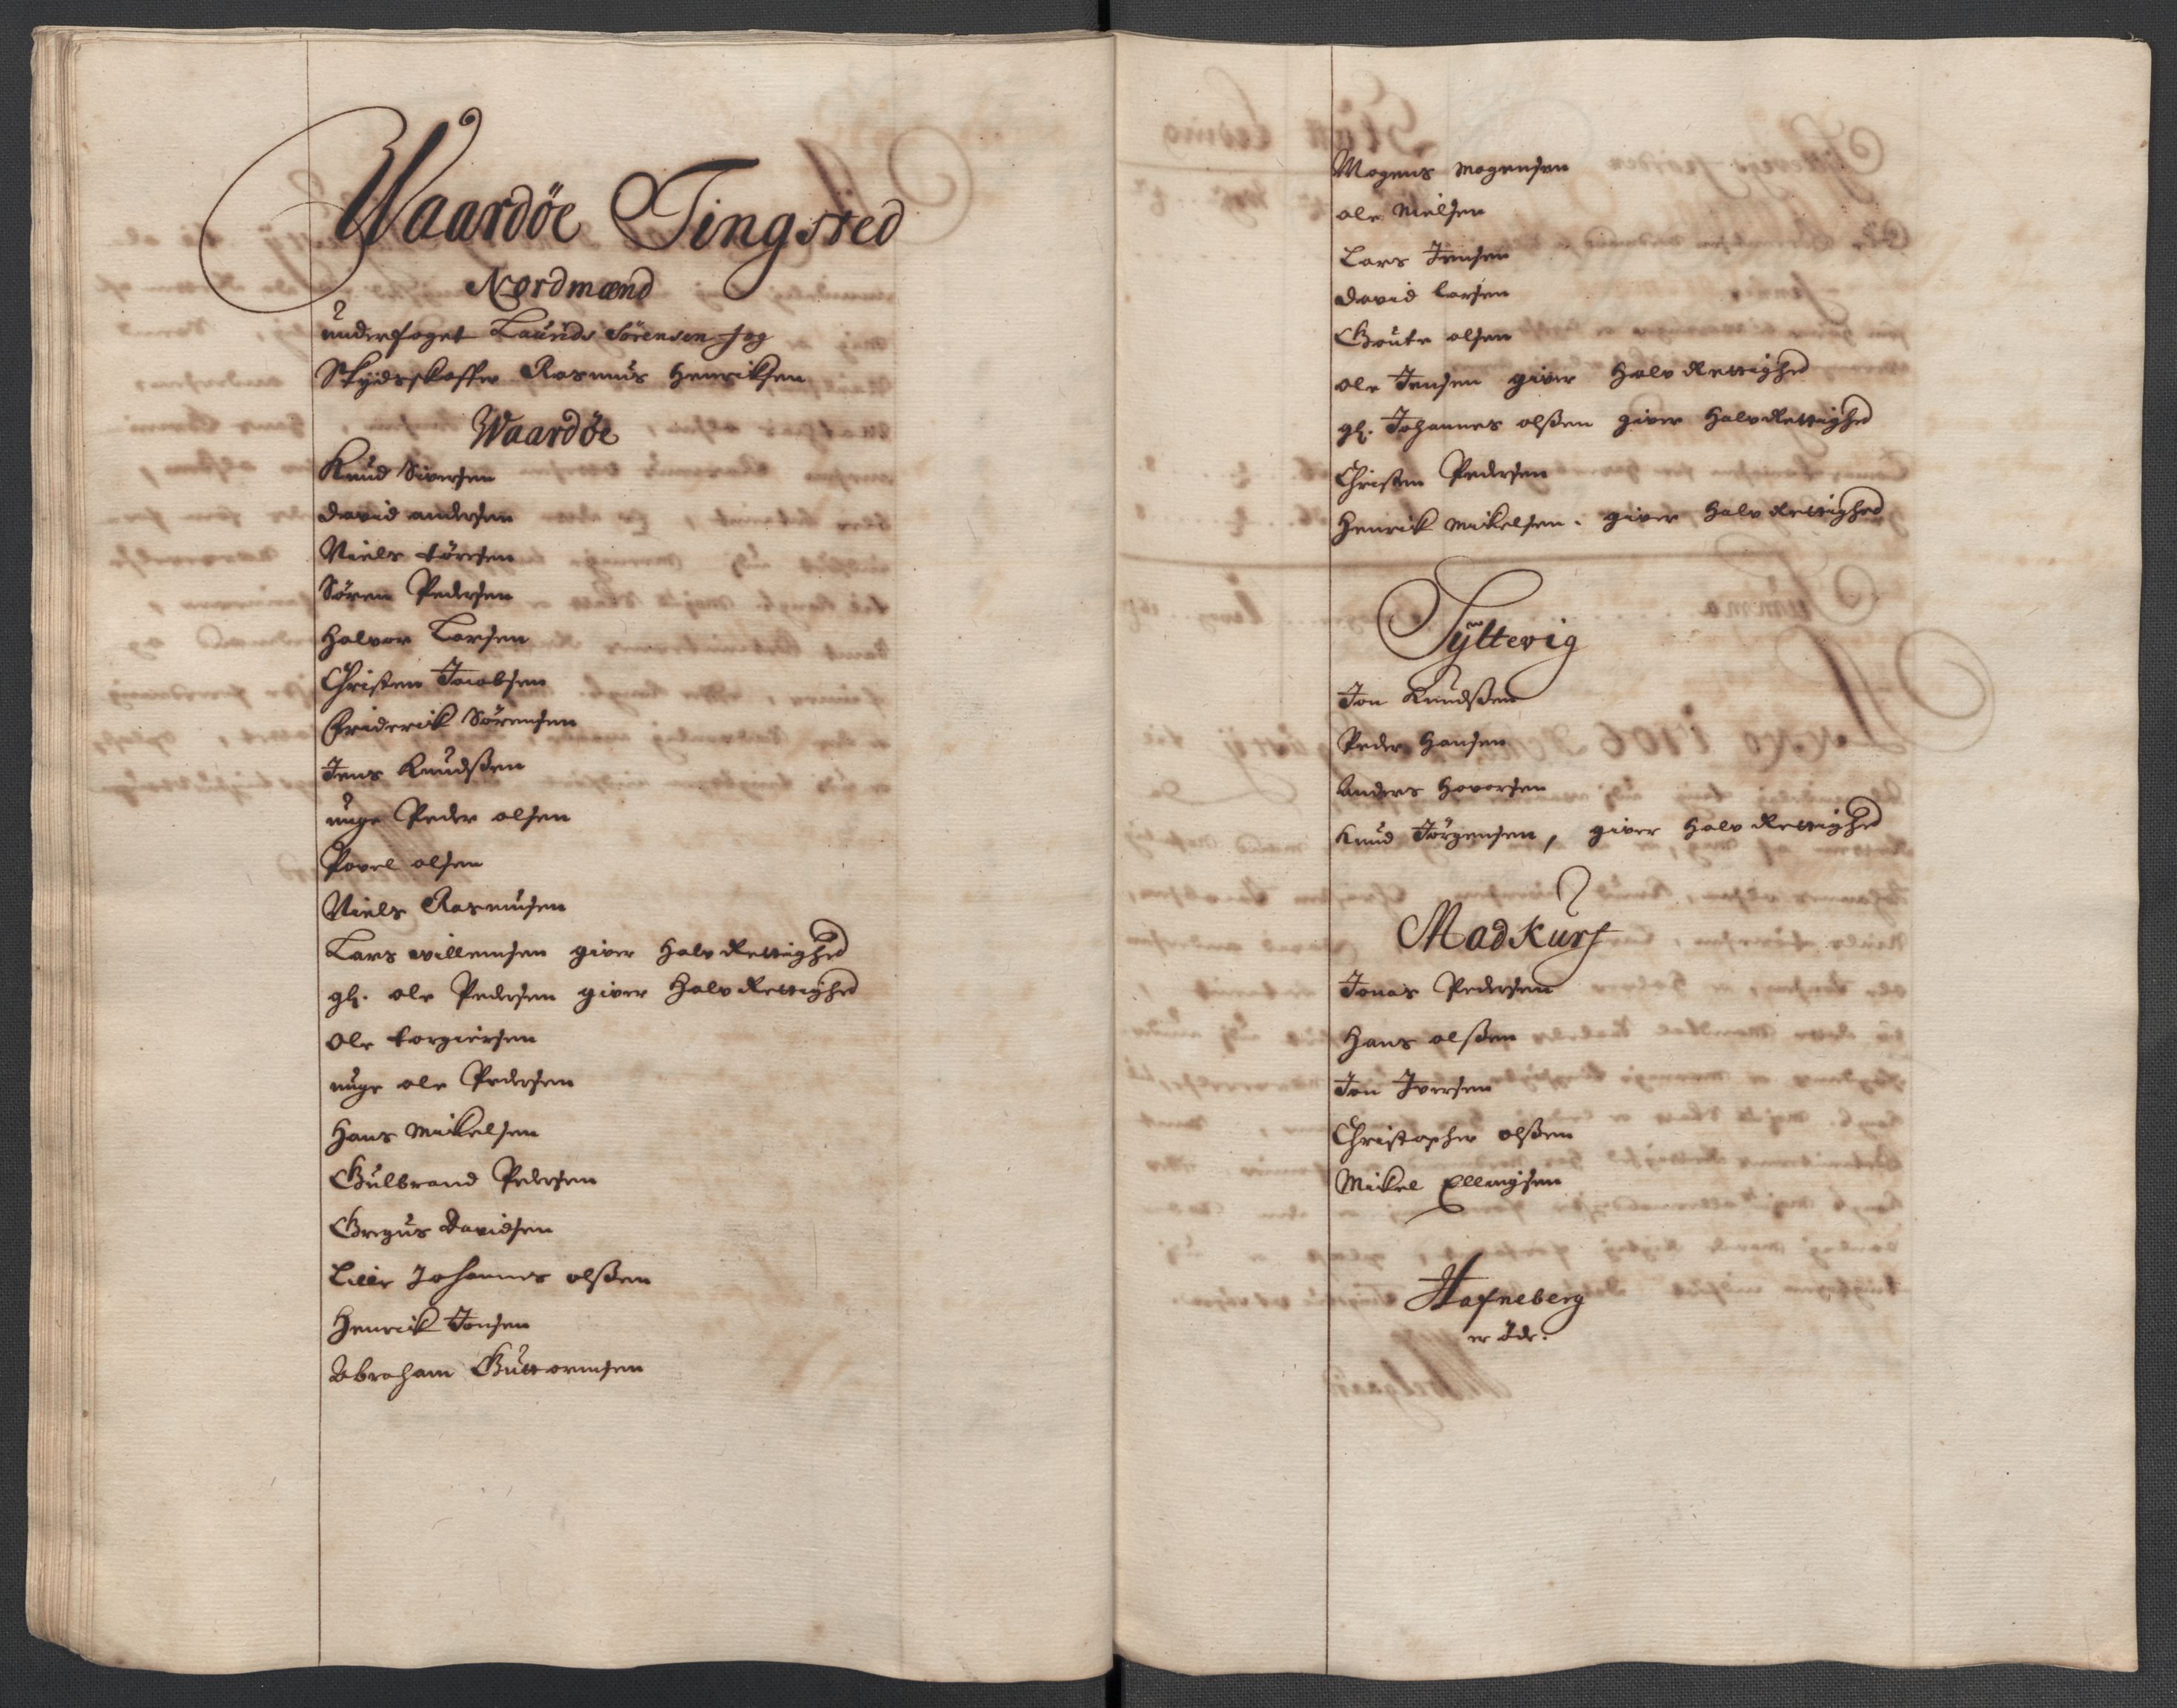 Waardøe Tingsted
Nordmænd
underfoget Laurids Sørensen og
Skydsskaffer Rasmus Henriksen
Waardøe
Knud Siversen
David andersen
Niels tørresen
Søren Pedersen
Halvor Larsen
Christen Jacobsen
Friderik Sørensen
Jens Knudsøn
unge Peder olsen
Povel olsen
Niels Rasmusen
Lars willemsen giver Halv Rettighed
gl. ole Pedersen giver Halv Rettighed
Ole torgiersen
unge ole Pedersen
Hans Mikelsen
Gulbrand Pedersen
Gregus Davidsen
Lille Johannes olssen
Henrik Jonsen
Abraham Guttormsen
Mogens Mogensen
ole Nielsen
Lars Jensen
David larsen
Goute olsen
ole Jensen giver Halv Rettighed
gl. Johannes olssen giver Halv Rettighed
Christen Pedersen
Henrik Mikelsen. giver Halv Rettighed
Syltevig
Jon Knudssen
Peder Hansen
Anders Havorsen
Knud Jørgensen, giver Halv Rettighed
Madkurf
Jonas Pedersen
Hans olssen
Jon Iversen
Christopher olssen
Mikel Ellingsen
Hafneberg
er øde.